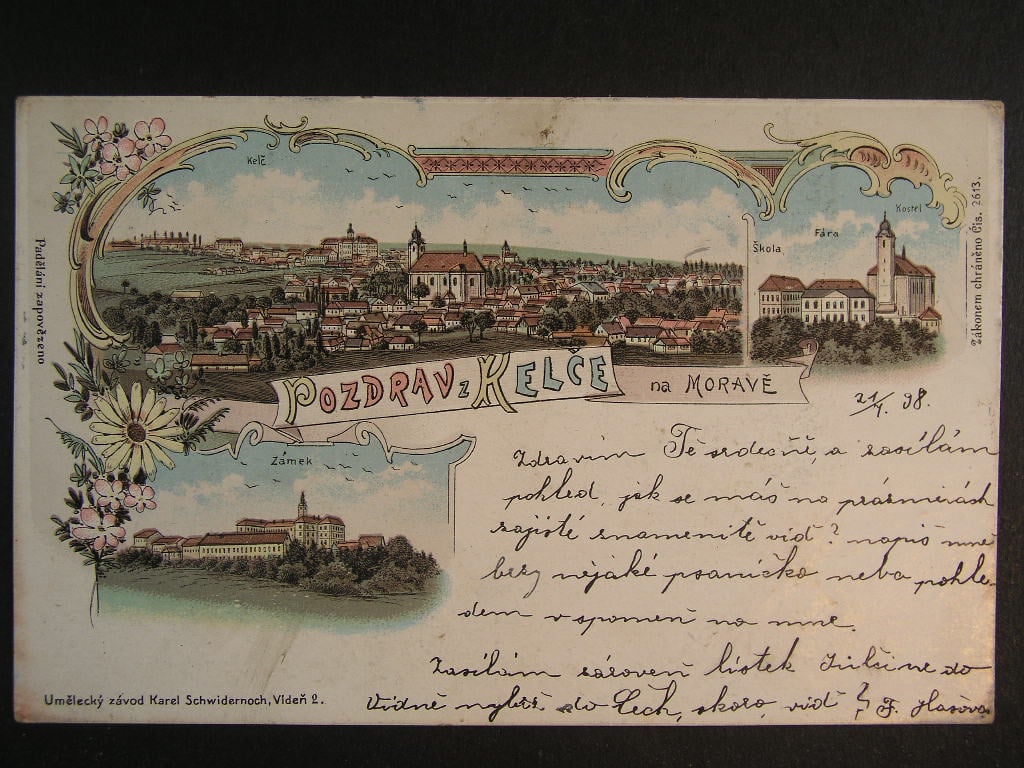 Kelč
Kostel
Fára
Škola
Padělání zapovězeno
Zákonem chráněno Čis. 2613.
POZDRAV z KELČE na MORAVĚ
21/4. 98.
Zámek
Zdravím Tě srdečně, a zasílám
pohled, jak se máš na prázninách
zajisté znamenitě viď? napiš mně
brzy nějaké psaníčko neba pohle-
dem vspomeň na mne.
Zasílám zároveň lístek Julčine do
Vídně do Čech, skoro, viď?
Umělecký závod Karel Schwidernoch, Vídeň 2.